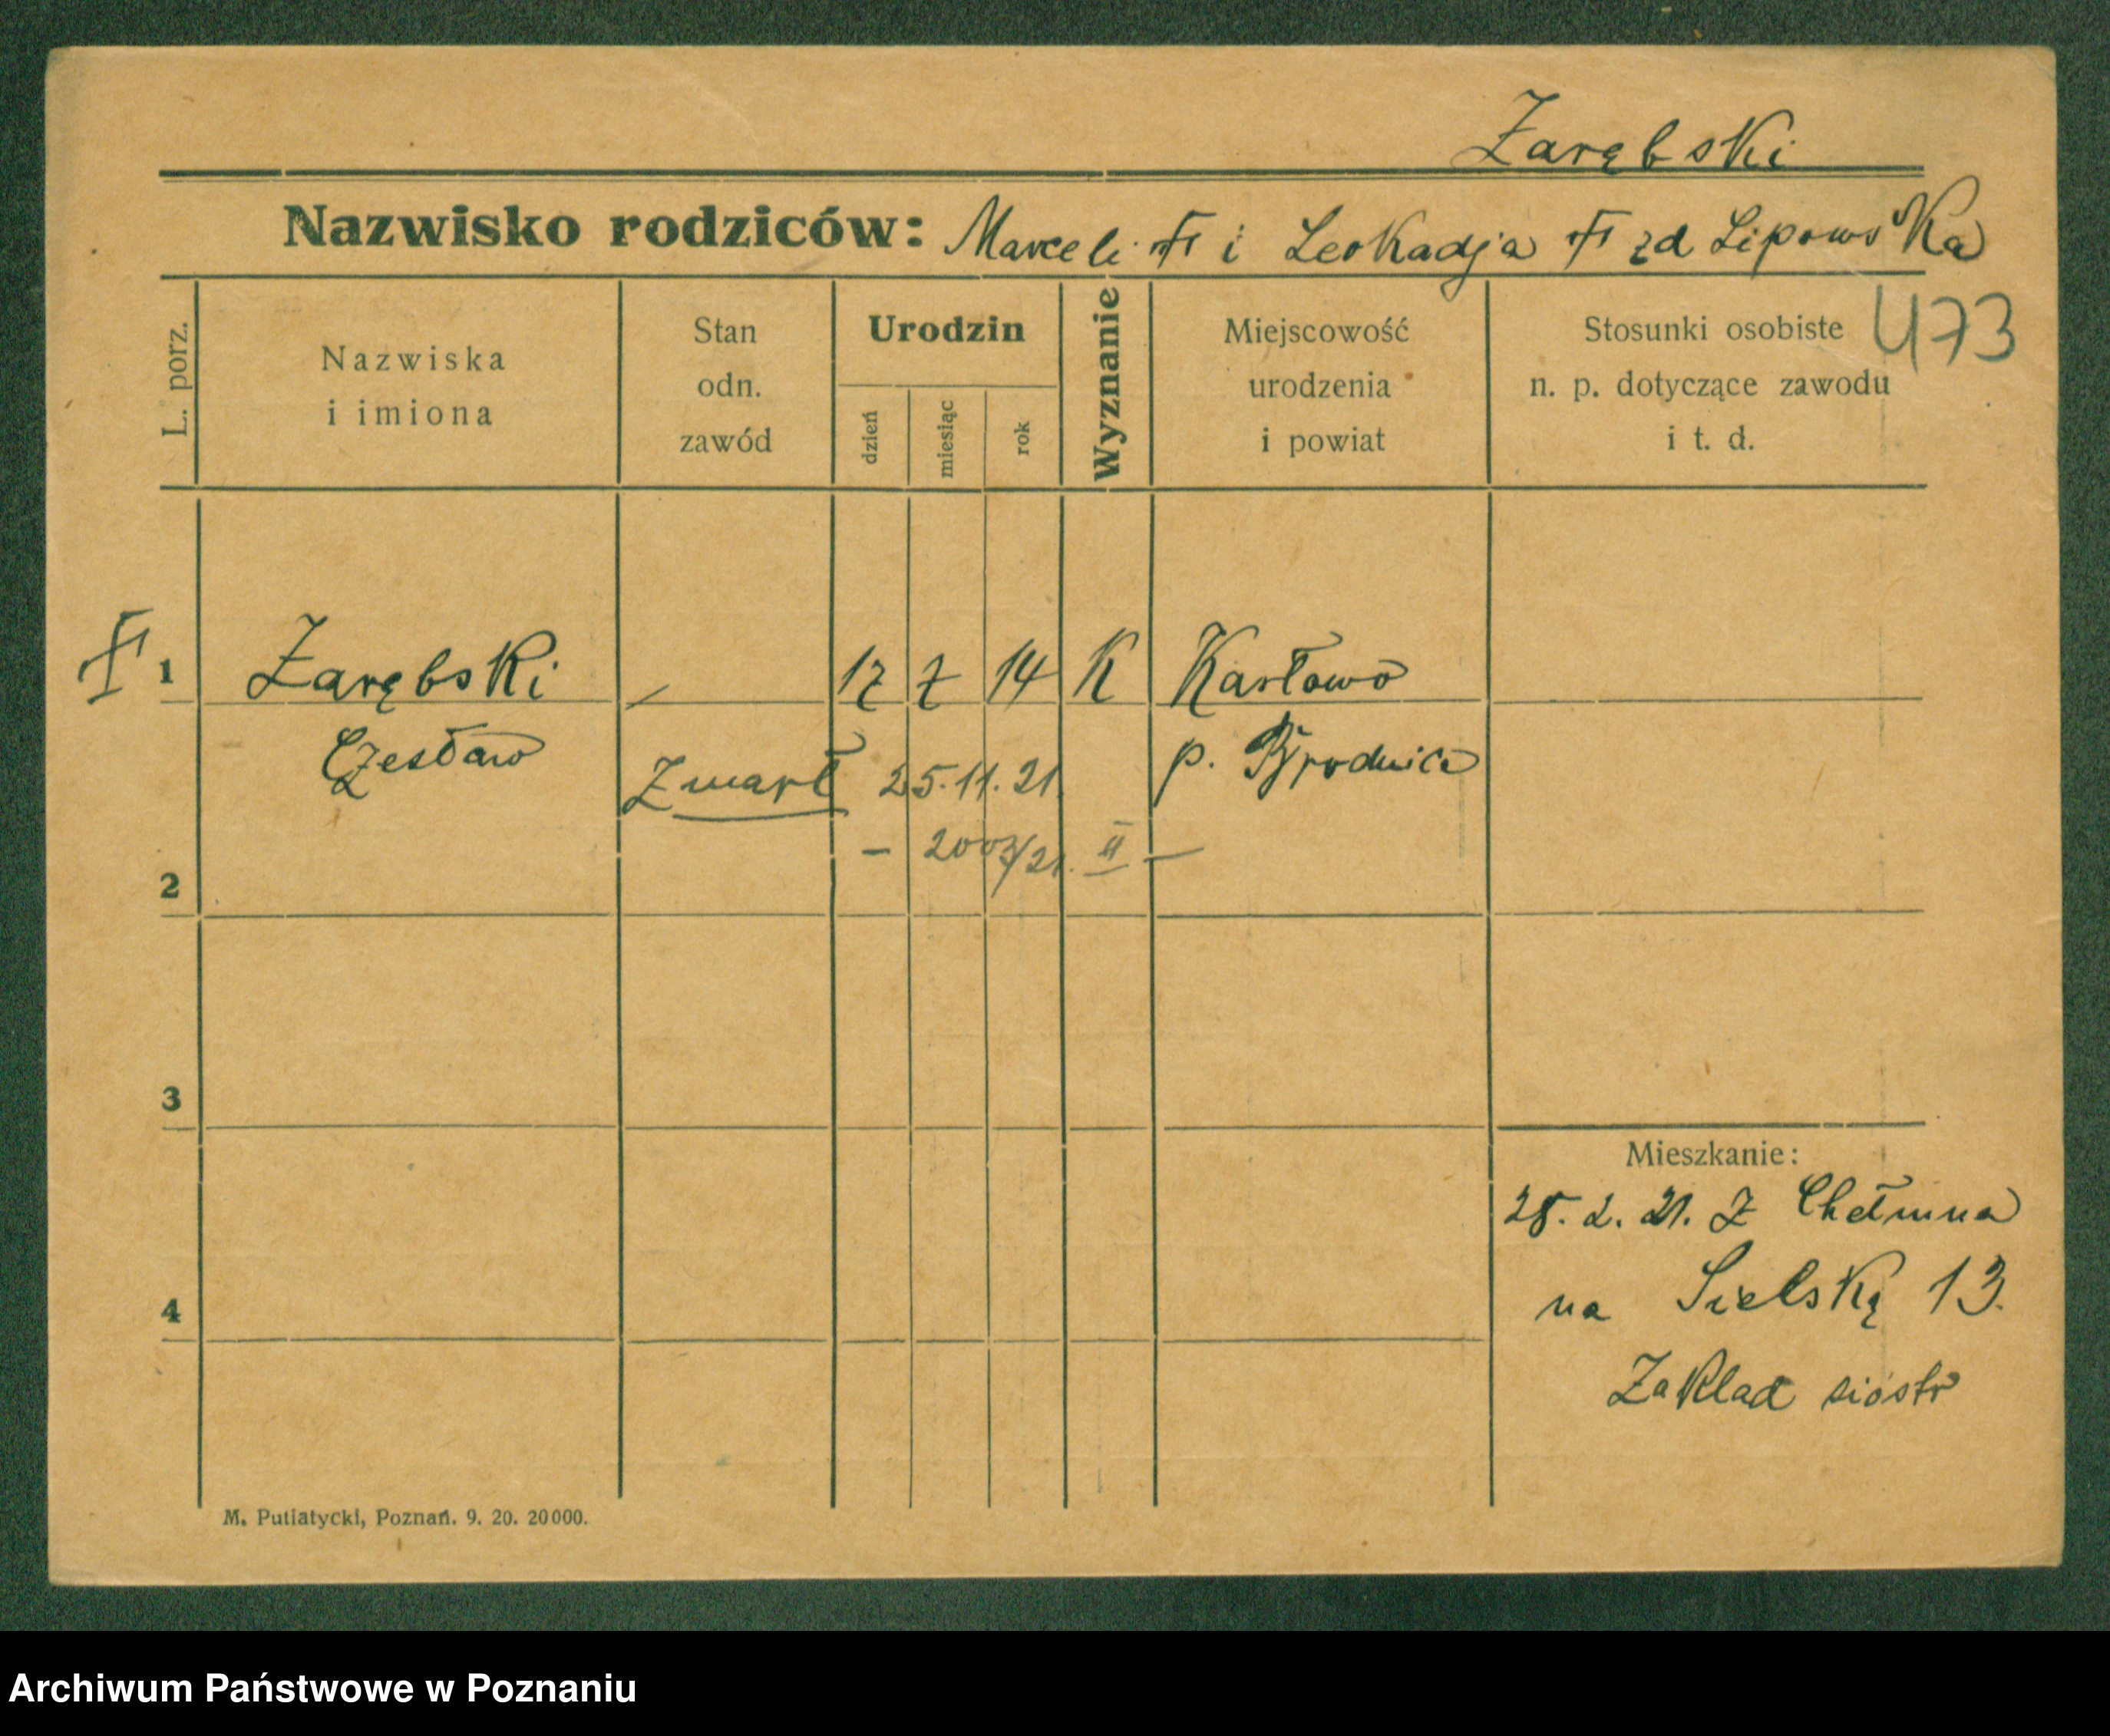 Zarębski
Nazwisko rodziców: Marceli † i Leokadja † zd Lipowska
473
L. porz.
Nazwiska
i imiona
Stan
odn.
zawód
Urodzin
dzień
miesiąc
rok
Wyznanie
Miejscowość
urodzenia
i powiat
Stosunki osobiste
n. p. dotyczące zawodu
i t. d.
† 1 Zarębski 17 7 14 K Karłowo
Czesław p. Brodnica
Zmarł 25.11.21
2 – /21. II –
3
Mieszkanie:
28. 2. 21. Z Chełmna
4 na Sielską 13.
Zaklad siostr
M. Putiatycki, Poznań. 9. 20. 20000.
Archiwum Państwowe w Poznaniu